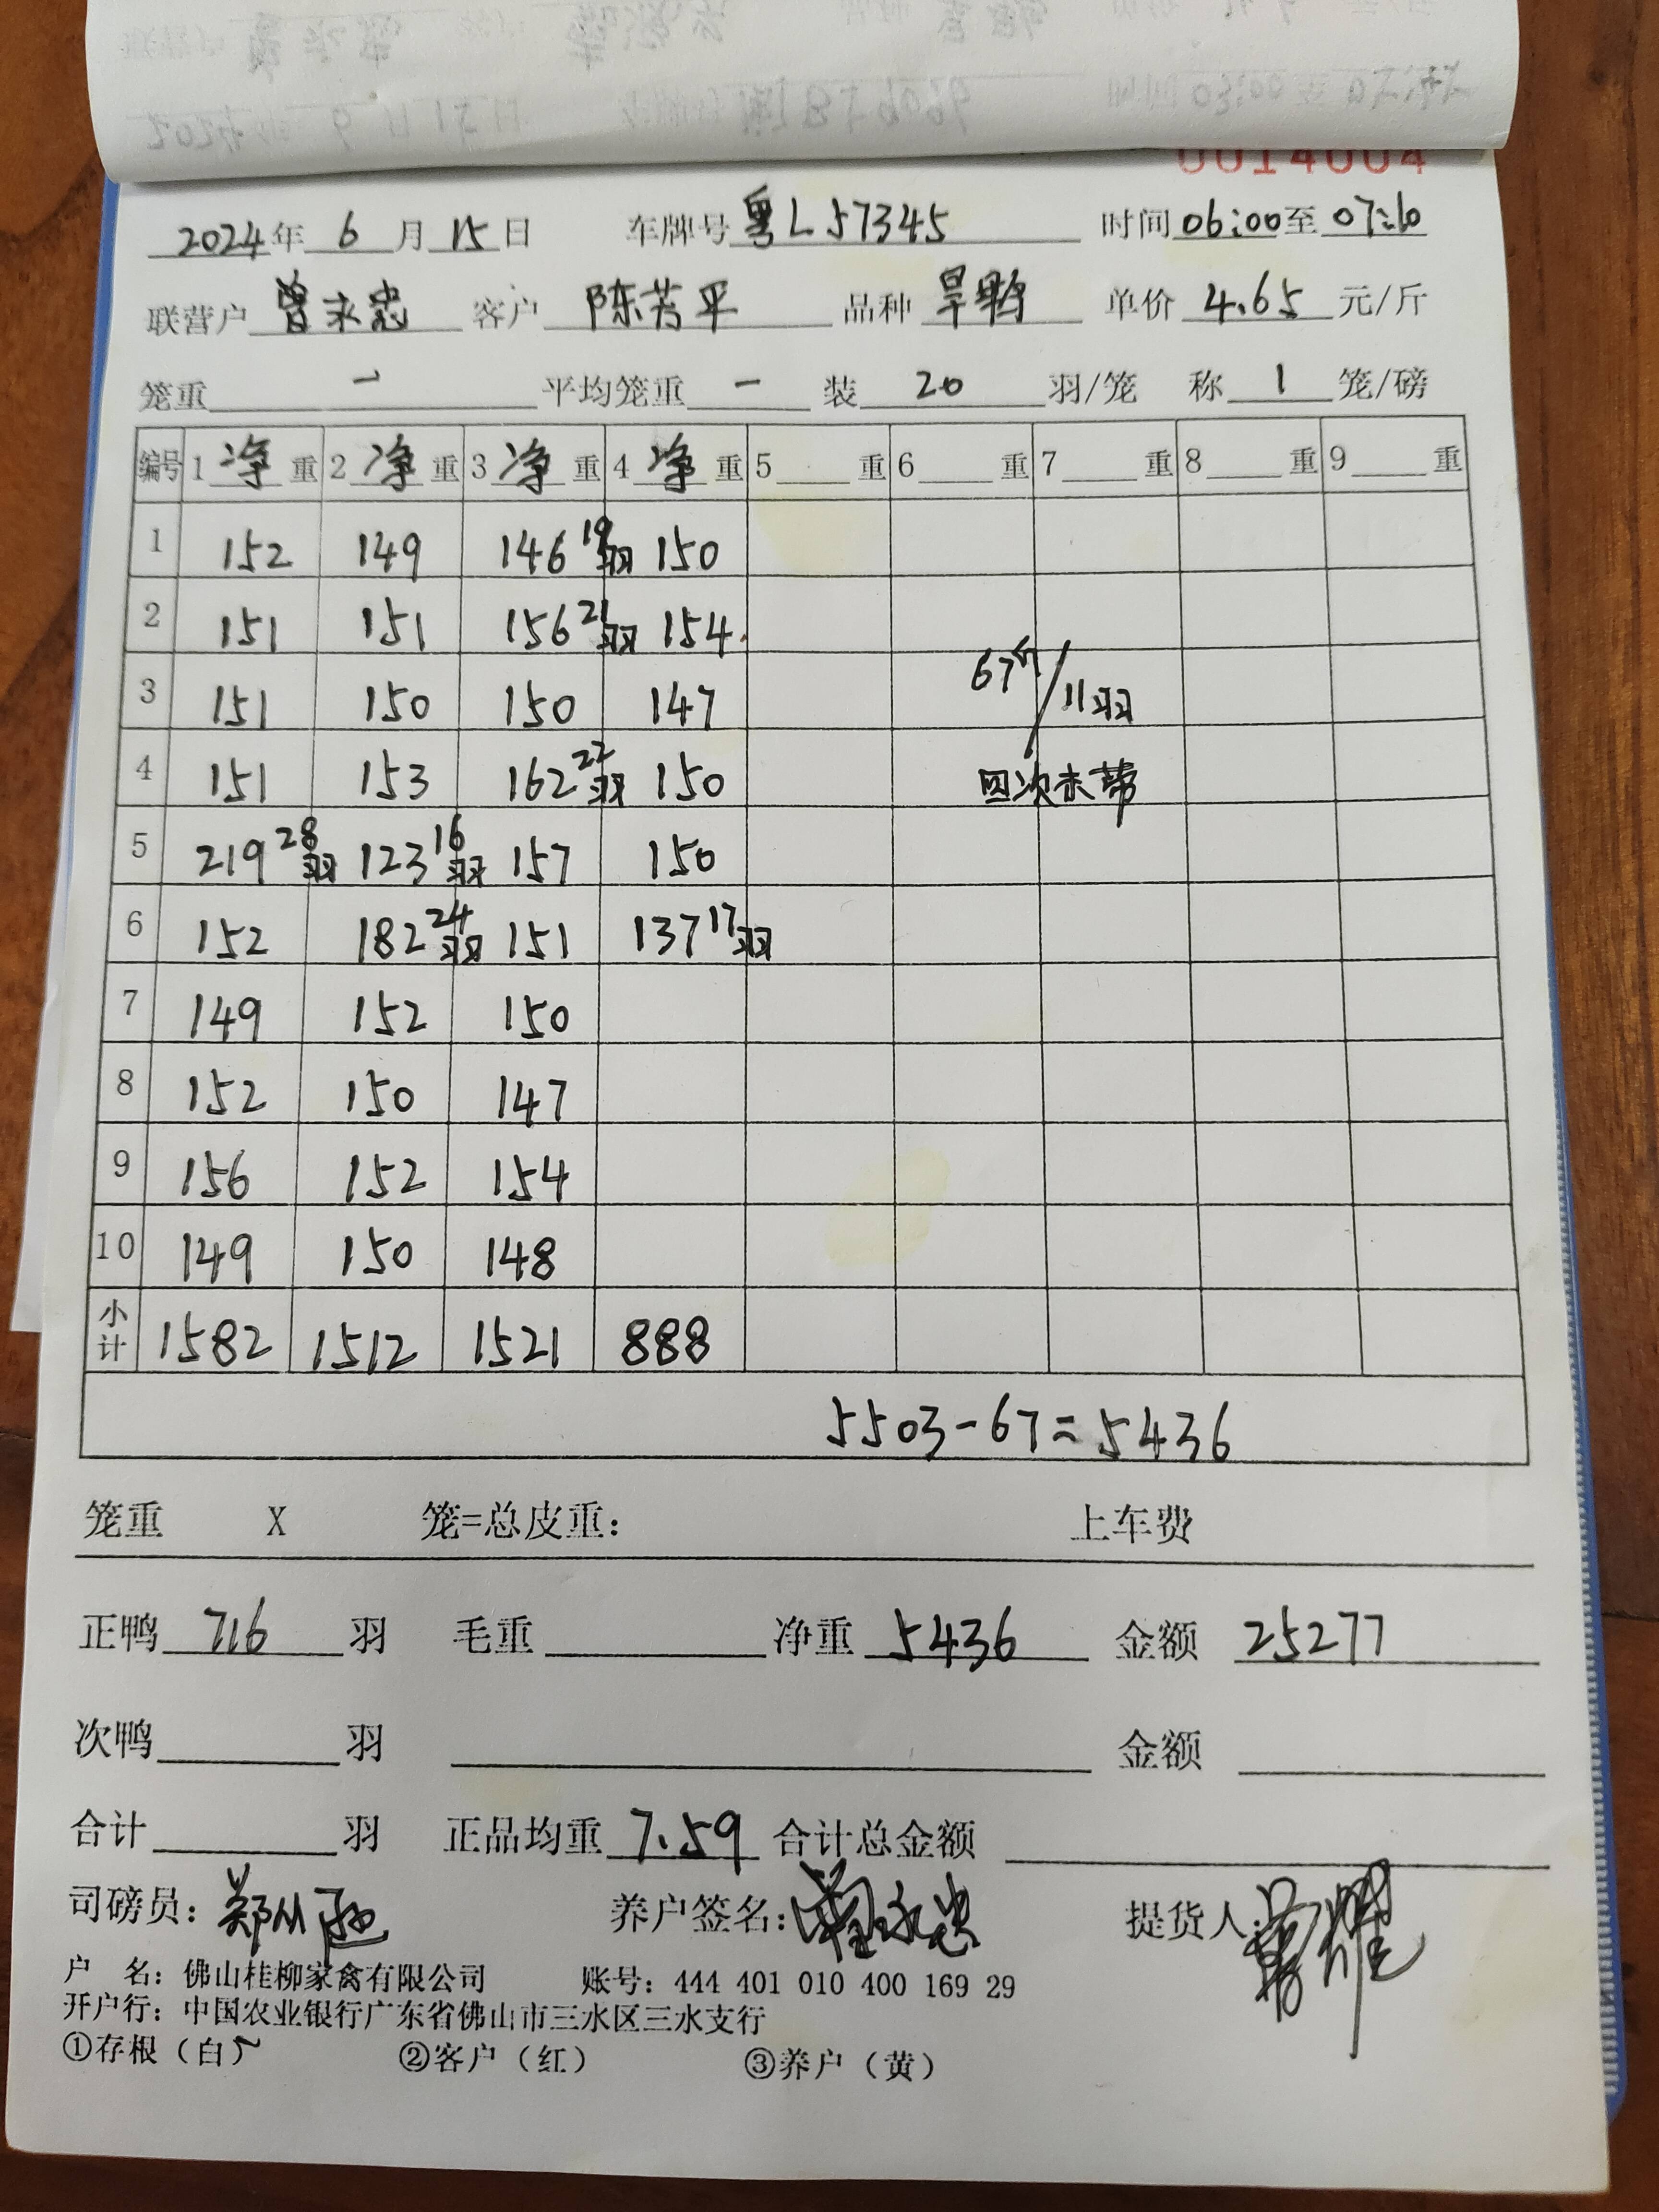 0014004
2024年 6 月 15 日 车牌号 粤L57345 时间 06:00 至 07:10
联营户 曾永忠 客户 陈芳平 品种 旱鸭 单价 4.65 元/斤
笼重 — 平均笼重 — 装 20 羽/笼 称 1 笼/磅
编号 1 净 重 2 净 重 3 净 重 4 净 重 5 重 6 重 7 重 8 重 9 重
1 152 149 146 19羽 150
2 151 151 156 21羽 154
3 151 150 150 147 67斤/11羽
4 151 153 162 22羽 150 因次未带
5 219 28羽 123 16羽 157 150
6 152 182 24羽 151 137 17羽
7 149 152 150
8 152 150 147
9 156 152 154
10 149 150 148
小计 1582 1512 1521 888
5503-67=5436
笼重 X 笼=总皮重: 上车费
正鸭 716 羽 毛重 净重 5436 金额 25277
次鸭 羽 金额
合计 羽 正品均重 7.59 合计总金额
司磅员: 养户签名: 曾永忠 提货人:
户 名: 佛山桂柳家禽有限公司 账号: 444 401 010 400 169 29
开户行: 中国农业银行广东省佛山市三水区三水支行
①存根（白） ②客户（红） ③养户（黄）